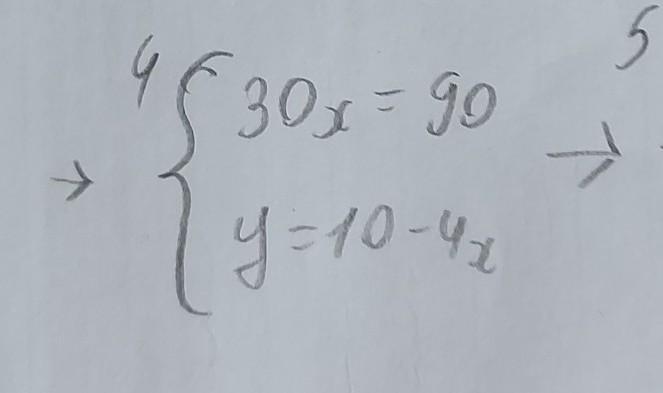 4 5
30x = 90
→ →
y = 10 - 4x